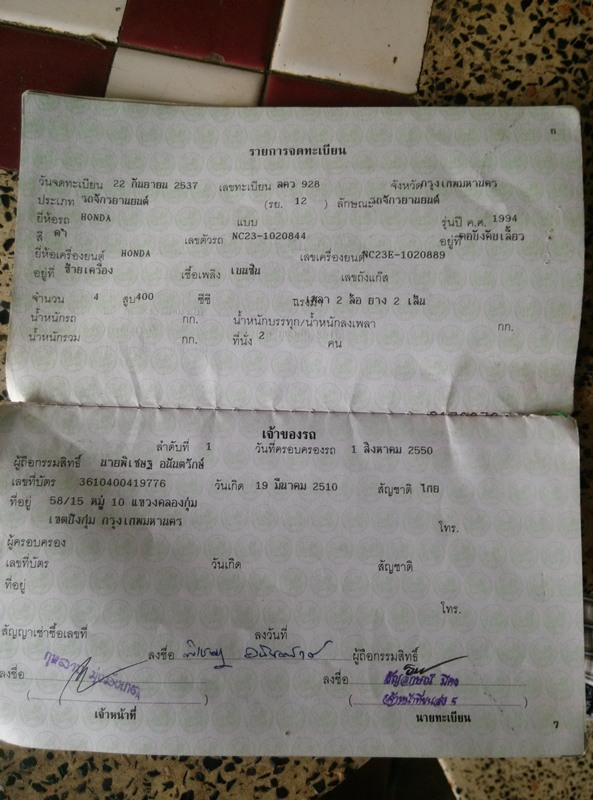 6
รายการจดทะเบียน
วันจดทะเบียน 22 กันยายน 2537 เลขทะเบียน ลคว 928 จังหวัด กรุงเทพมหานคร
ประเภท รถจักรยานยนต์ (รย. 12 ) ลักษณะ รถจักรยานยนต์
ยี่ห้อรถ HONDA แบบ รุ่นปี ค.ศ. 1994
สี ดำ เลขตัวรถ NC23-1020844 อยู่ที่ คอบังคับเลี้ยว
ยี่ห้อเครื่องยนต์ HONDA เลขเครื่องยนต์ NC23E-1020889
อยู่ที่ ข้ายเครื่อง เชื้อเพลิง เบนซิน เลขถังแก๊ส
จำนวน 4 สูบ 400 ซีซี แรงม้า เพลา 2 ล้อ ยาง 2 เส้น
น้ำหนักรถ กก. น้ำหนักบรรทุก/น้ำหนักลงเพลา กก.
น้ำหนักรวม กก. ที่นั่ง 2 คน
เจ้าของรถ
ลำดับที่ 1 วันที่ครอบครองรถ 1 สิงหาคม 2550
ผู้ถือกรรมสิทธิ์ นายพิเชษฐ อนันตวักษ์
เลขที่บัตร 3610400419776 วันเกิด 19 มีนาคม 2510 สัญชาติ ไทย
ที่อยู่ 58/15 หมู่ 10 แขวงคลองกุ่ม
เขตบึงกุ่ม กรุงเทพมหานคร โทร.
ผู้ครอบครอง
เลขที่บัตร วันเกิด สัญชาติ
ที่อยู่
โทร.
สัญญาเช่าซื้อเลขที่ ลงวันที่
ลงชื่อ ผู้ถือกรรมสิทธิ์
ลงชื่อ ลงชื่อ
เจ้าหน้าที่ขนส่ง 5
เจ้าหน้าที่ นายทะเบียน
7